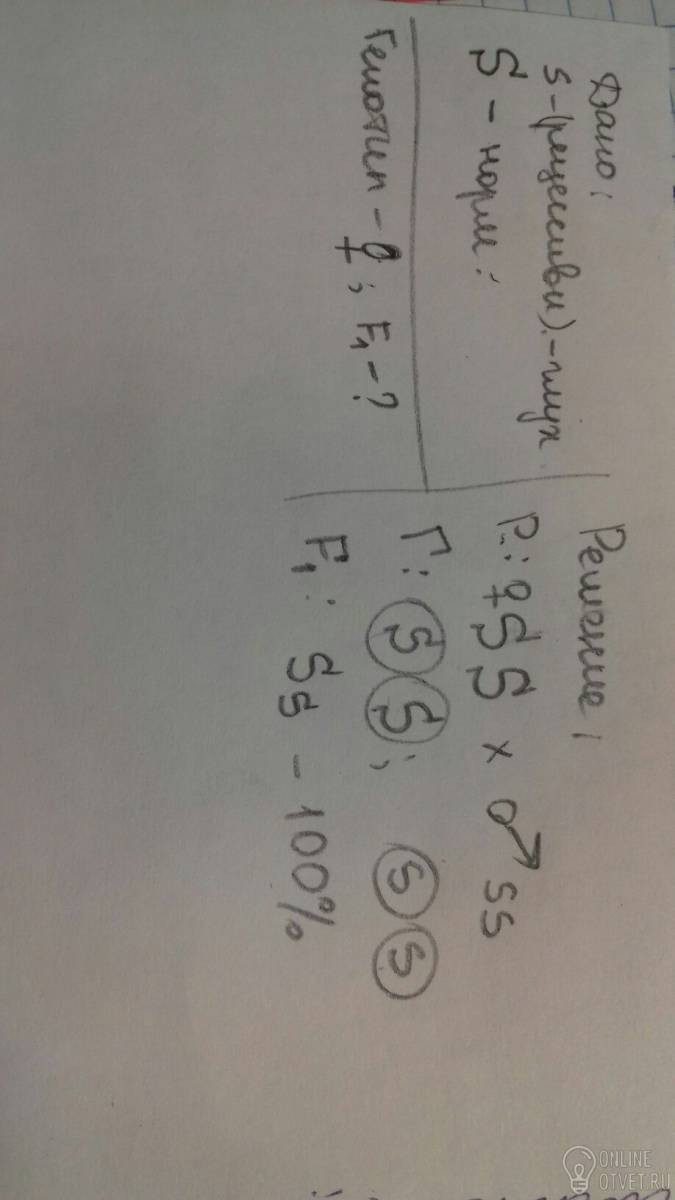 Дано:
s-(рецессивн).-глух.
S - норм.
Генотип - ♀; F₁ - ?
Решение:
P.: ♀SS x ♂ss
Г: S S; s s
F₁: Ss - 100%
ONLINE
OTVET.RU